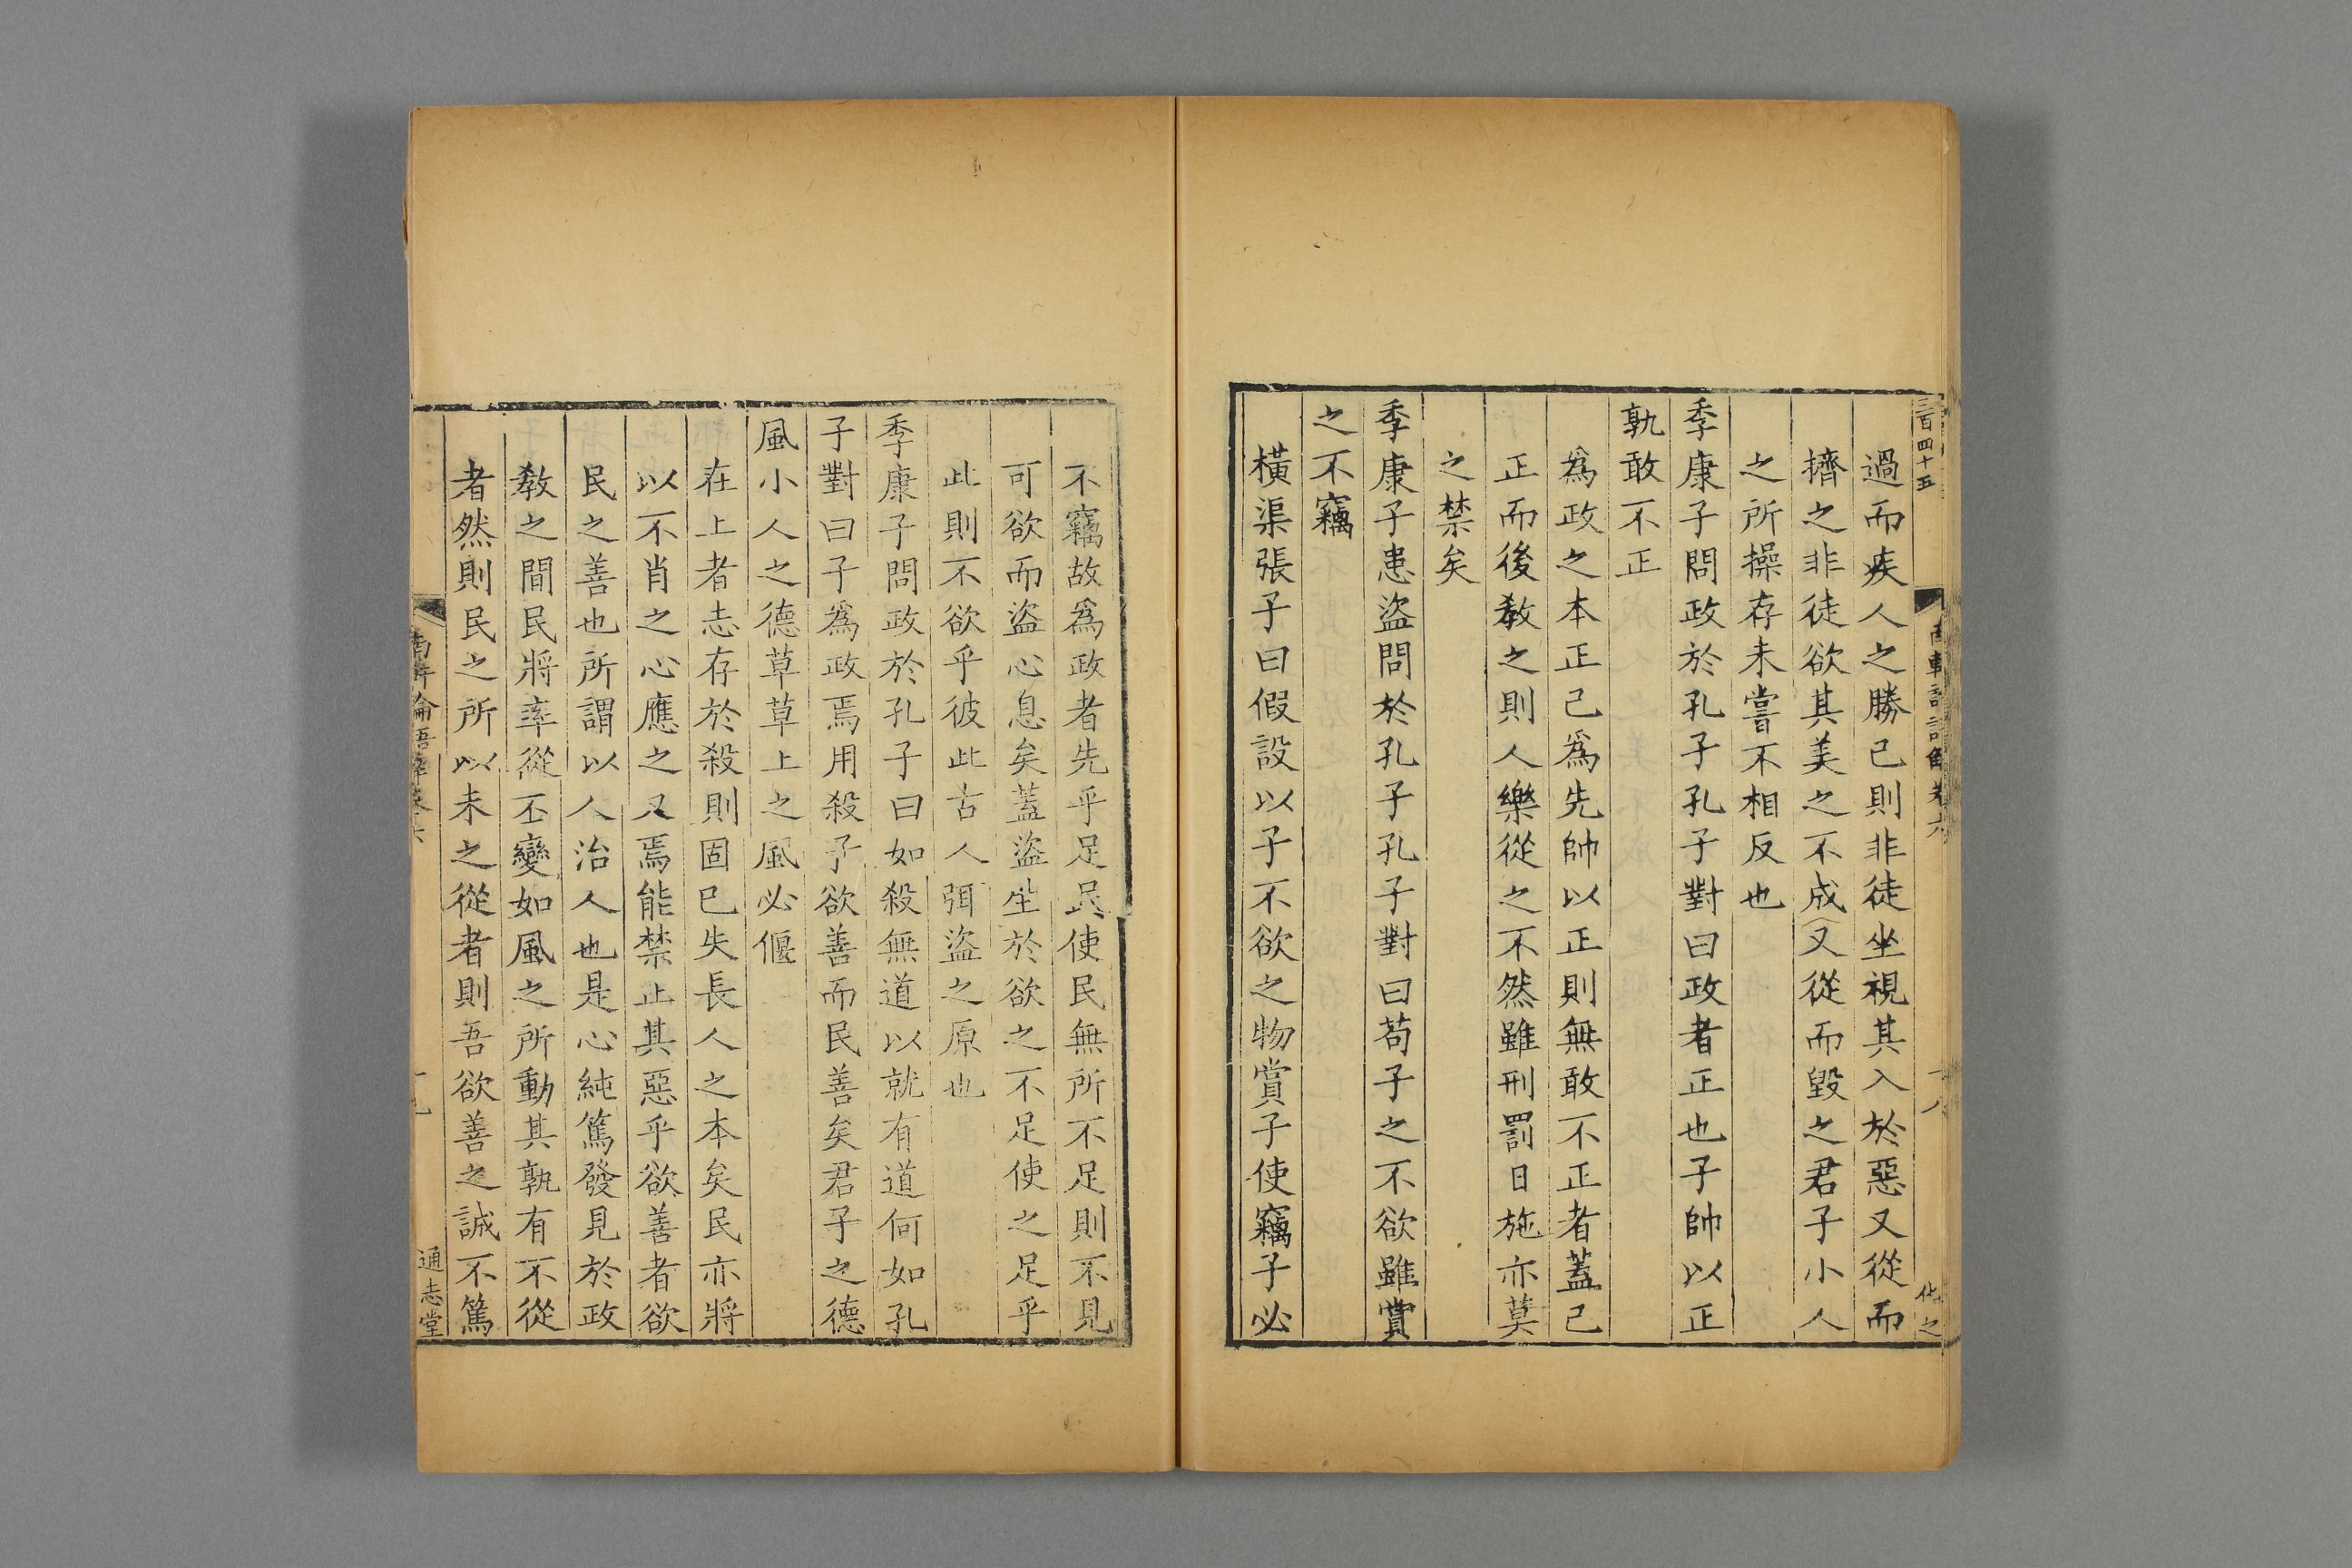 三百四十五
過而疾人之勝己則非徒坐視其入於惡又從而
擠之非徒欲其美之不成又從而毀之君子小人
之所操存未嘗不相反也
季康子問政於孔子孔子對曰政者正也子帥以正
孰敢不正
爲政之本正己爲先帥以正則無敢不正者蓋己
正而後教之則人樂從之不然雖刑罰日施亦莫
之禁矣
季康子患盜問於孔子孔子對曰苟子之不欲雖賞
之不竊
橫渠張子曰假設以子不欲之物賞子使竊子必
不竊故爲政者先乎足民使民無所不足則不見
可欲而盜心息矣蓋盜生於欲之不足使之足乎
此則不欲乎彼此古人弭盜之原也
季康子問政於孔子曰如殺無道以就有道何如孔
子對曰子爲政焉用殺子欲善而民善矣君子之德
風小人之德草草上之風必偃
在上者志存於殺則固已失長人之本矣民亦將
以不肖之心應之又焉能禁止其惡乎欲善者欲
民之善也所謂以人治人也是心純篤發見於政
教之間民將率從丕變如風之所動其孰有不從
者然則民之所以未之從者則吾欲善之誠不篤
通志堂